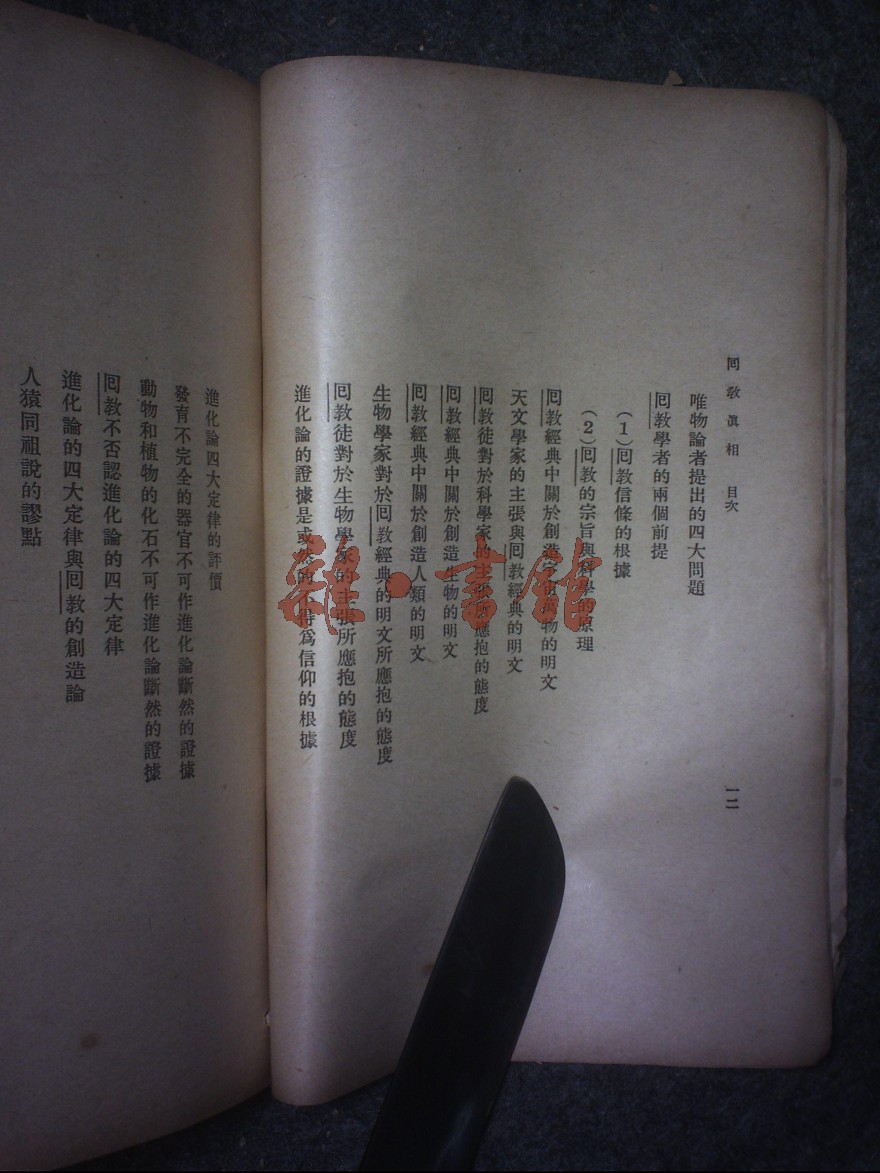 回教眞相 目次
一二
唯物論者提出的四大問題
回教學者的兩個前提
(1)回教信條的根據
(2)回教的宗旨與科學的原理
回教經典中關於創造宇宙萬物的明文
天文學家的主張與回教經典的明文
回教徒對於科學家的主張所應抱的態度
回教經典中關於創造生物的明文
回教經典中關於創造人類的明文
生物學家對於回教經典的明文所應抱的態度
回教徒對於生物學家的主張所應抱的態度
進化論的證據是或然的不得爲信仰的根據
進化論四大定律的評價
發育不完全的器官不可作進化論斷然的證據
動物和植物的化石不可作進化論斷然的證據
回教不否認進化論的四大定律
進化論的四大定律與回教的創造論
人猿同祖說的謬點
雜·書館